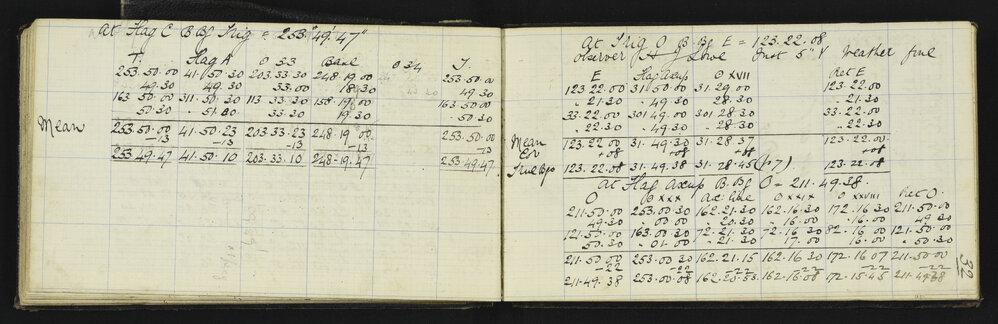 At Flag C B By Trig = 253° 49' 47"
T. Flag A O 33 Base O 34 T.
253.50.00 41.50.30 203.33.30 248.19.00 253.50.00
49.30 49.30 33.00 18.30 49.30
163.50.00 311.50.30 113.33.30 158.19.00 163.50.00
50.30 51.00 33.30 19.30 50.30
Mean 253.50.00 41.50.23 203.33.23 248.19.00 253.50.00
-13 -13 -13 -13 -13
253.49.47 41.50.10 203.33.10 248.19.47 253.49.47
At Trig O B. By E = 123.22.08
Observer H J Lowe Inst 5" V Weather fine
E Flag O XVII Ret E
123.22.00 31.50.00 31.29.00 123.22.00
" 21.30 " 49.30 28.30 " 21.30
33.22.00 301.49.00 301.28.30 33.22.00
" 22.30 " 49.30 " 28.30 " 22.30
Mean 123.22.00 31.49.30 31.28.37 123.22.00
Cor +08 +08 +08 +08
True Bgs 123.22.08 31.49.38 31.28.45 (1.7) 123.22.08
At Flag B. By O = 211.49.38.
O O XXX O XXIX O XXVIII Ret O.
211.50.00 253.00.30 162.21.30 162.16.30 172.16.30 211.50.00
49.30 " 00.00 " 20.30 " 16.00 " 16.00 49.30
121.50.00 163.00.30 72.21.30 72.16.30 82.16.00 121.50.00
50.30 " 01.00 " 21.30 17.00 " 16.00 " 50.30
211.50.00 253.00.30 162.21.15 162.16.30 172.16.07 211.50.00
-22 -22 -22 -22 -22 -22
211.49.38 253.00.08 162.16.08 172.15.45 211.49.38
32